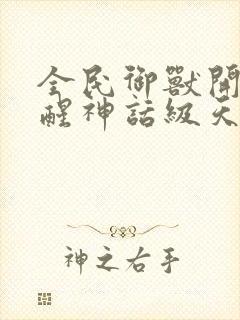 全民御獸開
醒神話級天
神之右手